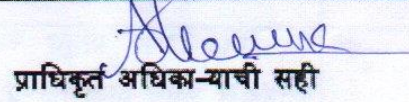 प्राधिकृर्त अधिका-याची सही